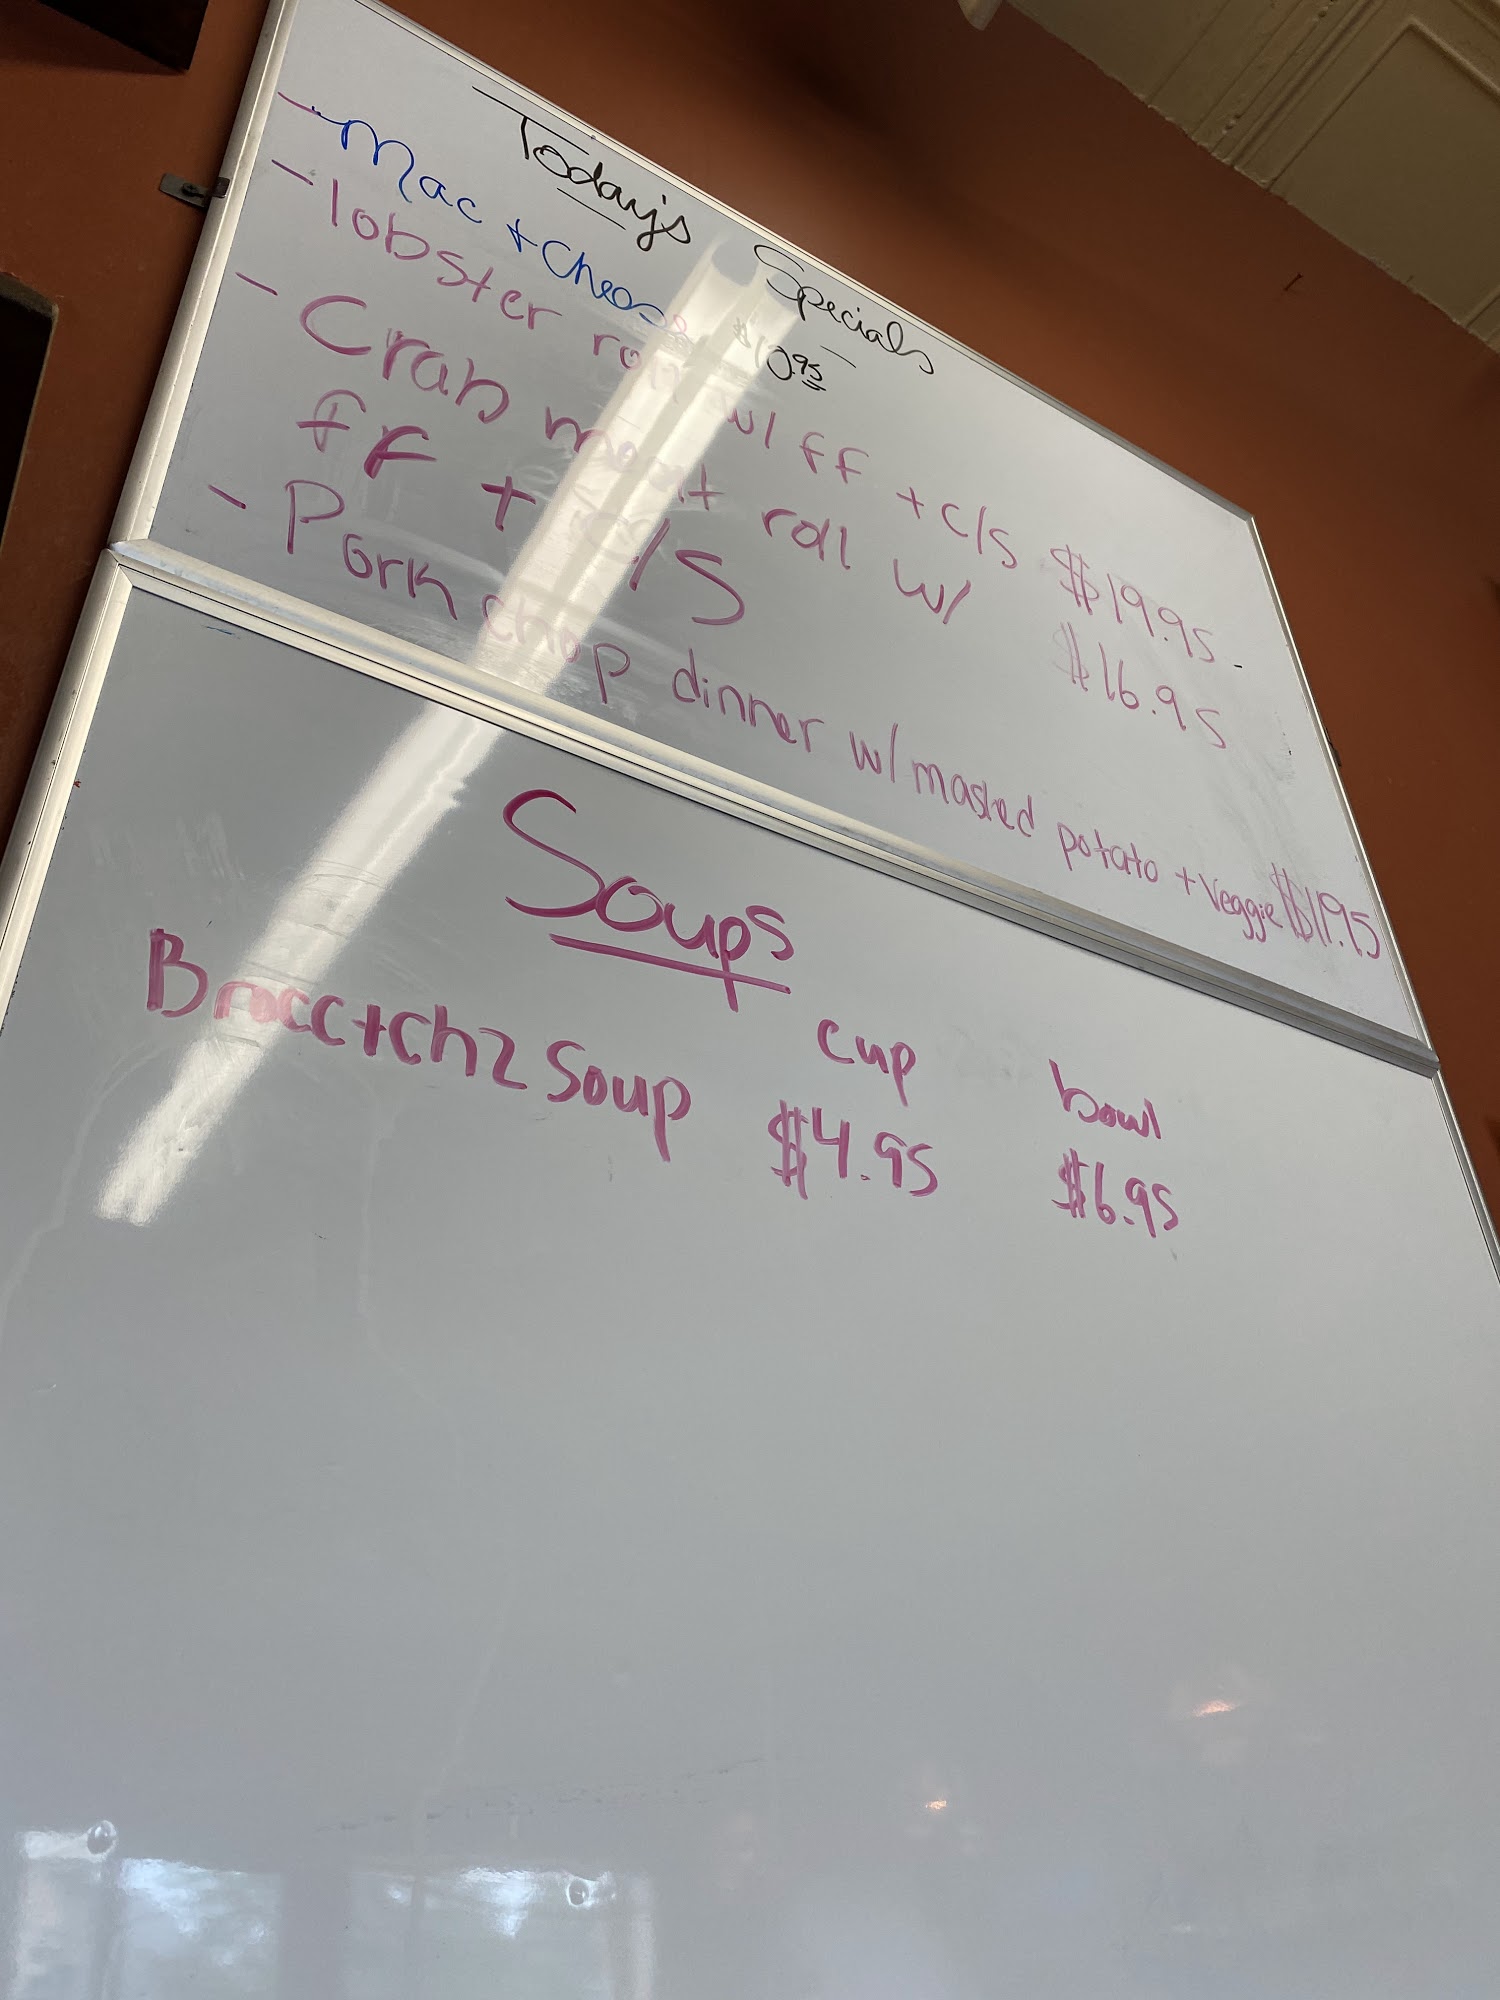 Today's Specials
- Mac + Cheese $10.95
- lobster roll w/ ff + c/s $19.95
- Crab meat roll w/ $16.95
ff + c/s
- Pork chop dinner w/ mashed potato + Veggie $11.95
Soups
cup bowl
Brocc+chz Soup $4.95 $6.95